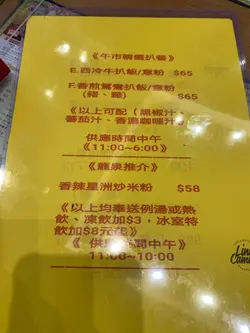 《午市精選扒餐》
E.西冷牛扒飯/意粉 $65
F.香煎鴛鴦扒飯/意粉
(豬、雞) $65
《以上可配(黑椒汁、
蕃茄汁、香濃咖喱汁)》
供應時間中午
《11:00~6:00》
《龍泉推介》
香辣星洲炒米粉 $58
《以上均奉送例湯或熱
飲、凍飲加$3，冰室特
飲加$8元起》
《 供應時間中午》
11:00~10:00